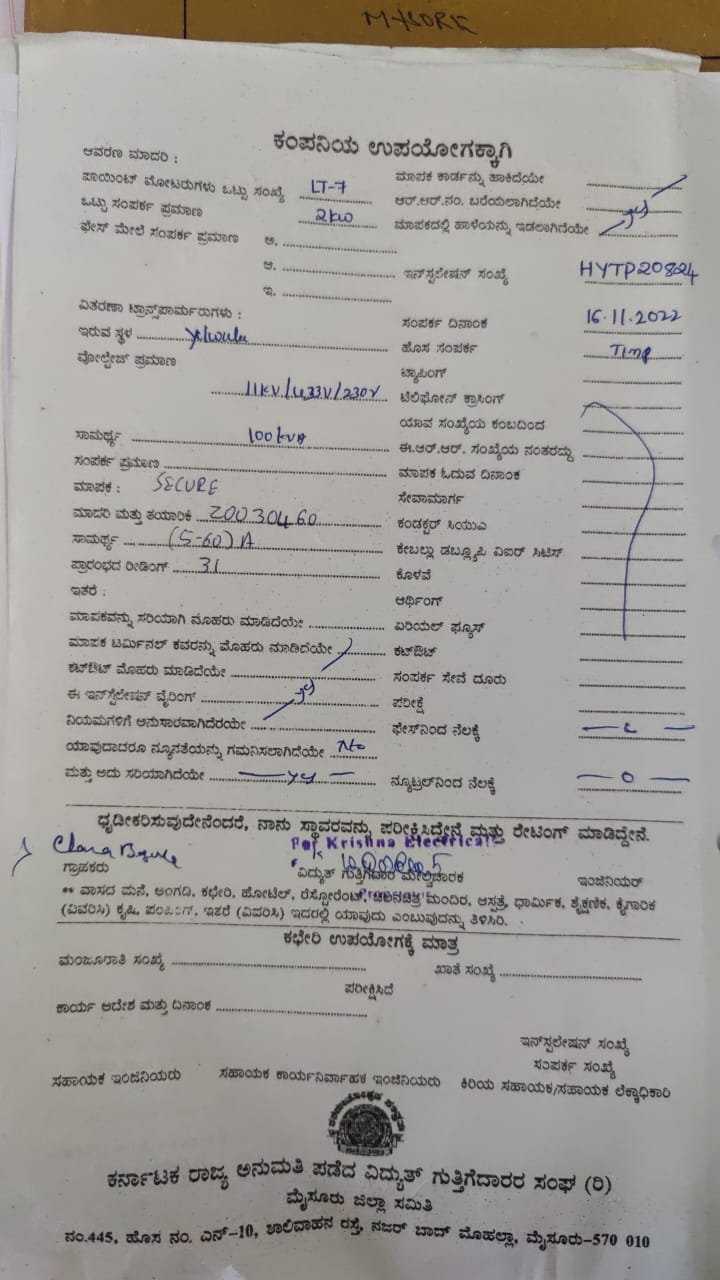 MYSORE
ಕಂಪನಿಯ ಉಪಯೋಗಕ್ಕಾಗಿ
ಆವರಣ ಮಾದರಿ :
ಪಾಯಿಂಟ್ ಮೋಟರುಗಳು ಒಟ್ಟು ಸಂಖ್ಯೆ LT-7
ಒಟ್ಟು ಸಂಪರ್ಕ ಪ್ರಮಾಣ 2kw
ಫೇಸ್ ಮೇಲೆ ಸಂಪರ್ಕ ಪ್ರಮಾಣ ಅ.
ಆ.
ಇ.
ಮಾಪಕ ಕಾರ್ಡನ್ನು ಹಾಕಿದೆಯೇ
ಆರ್.ಆರ್.ನಂ. ಬರೆಯಲಾಗಿದೆಯೇ
ಮಾಪಕದಲ್ಲಿ ಹಾಳೆಯನ್ನು ಇಡಲಾಗಿದೆಯೇ yes
ಇನ್‌ಸ್ಟಲೇಷನ್ ಸಂಖ್ಯೆ HYTP20824
ವಿತರಣಾ ಟ್ರಾನ್ಸ್‌ಫಾರ್ಮರುಗಳು :
ಇರುವ ಸ್ಥಳ
ವೋಲ್ಟೇಜ್ ಪ್ರಮಾಣ
11KV/433V/230V
ಸಾಮರ್ಥ್ಯ 100kVA
ಸಂಪರ್ಕ ಪ್ರಮಾಣ
ಮಾಪಕ : SECURE
ಮಾದರಿ ಮತ್ತು ತಯಾರಿಕೆ 20030460
ಸಾಮರ್ಥ್ಯ (5-60)A
ಪ್ರಾರಂಭದ ರೀಡಿಂಗ್ 31
ಇತರೆ :
ಮಾಪಕವನ್ನು ಸರಿಯಾಗಿ ಮೊಹರು ಮಾಡಿದೆಯೇ
ಮಾಪಕ ಟರ್ಮಿನಲ್ ಕವರನ್ನು ಮೊಹರು ಮಾಡಿದೆಯೇ
ಕಟ್‌ಔಟ್ ಮೊಹರು ಮಾಡಿದೆಯೇ
ಈ ಇನ್‌ಸ್ಟಲೇಷನ್ ವೈರಿಂಗ್ yes
ನಿಯಮಗಳಿಗೆ ಅನುಸಾರವಾಗಿದೆರಯೇ
ಯಾವುದಾದರೂ ನ್ಯೂನತೆಯನ್ನು ಗಮನಿಸಲಾಗಿದೆಯೇ No
ಮತ್ತು ಅದು ಸರಿಯಾಗಿದೆಯೇ yes
ಸಂಪರ್ಕ ದಿನಾಂಕ 16.11.2022
ಹೊಸ ಸಂಪರ್ಕ Temp
ಟ್ಯಾಪಿಂಗ್
ಟೆಲಿಫೋನ್ ಕ್ರಾಸಿಂಗ್
ಯಾವ ಸಂಖ್ಯೆಯ ಕಂಬದಿಂದ
ಈ.ಆರ್.ಆರ್. ಸಂಖ್ಯೆಯ ನಂತರದ್ದು
ಮಾಪಕ ಓದುವ ದಿನಾಂಕ
ಸೇವಾಮಾರ್ಗ
ಕಂಡಕ್ಟರ್ ಸಿಯುಎ
ಕೇಬಲ್ಲು ಡಬ್ಲ್ಯೂಪಿ ವಿಐರ್ ಸಿಟಿಸ್
ಕೊಳವೆ
ಆರ್ಥಿಂಗ್
ಏರಿಯಲ್ ಫ್ಯೂಸ್
ಕಟ್‌ಔಟ್
ಸಂಪರ್ಕ ಸೇವೆ ದೂರು
ಪರೀಕ್ಷೆ
ಫೇಸ್‌ನಿಂದ ನೆಲಕ್ಕೆ
ನ್ಯೂಟ್ರಲ್‌ನಿಂದ ನೆಲಕ್ಕೆ — 0 —
ಧೃಡೀಕರಿಸುವುದೇನೆಂದರೆ, ನಾನು ಸ್ಥಾವರವನ್ನು ಪರೀಕ್ಷಿಸಿದ್ದೇನೆ ಮತ್ತು ರೇಟಿಂಗ್ ಮಾಡಿದ್ದೇನೆ.
For Krishna Electricals
ಗ್ರಾಹಕರು ವಿದ್ಯುತ್ ಗುತ್ತಿಗೆದಾರ ಮೇಲ್ವಿಚಾರಕ ಇಂಜಿನಿಯರ್
** ವಾಸದ ಮನೆ, ಅಂಗಡಿ, ಕಛೇರಿ, ಹೋಟೆಲ್, ರೆಸ್ಟೋರೆಂಟ್, ಚಲನಚಿತ್ರ ಮಂದಿರ, ಆಸ್ಪತ್ರೆ, ಧಾರ್ಮಿಕ, ಶೈಕ್ಷಣಿಕ, ಕೈಗಾರಿಕ
(ವಿವರಿಸಿ) ಕೃಷಿ, ಪಂಪಿಂಗ್, ಇತರೆ (ವಿವರಿಸಿ) ಇದರಲ್ಲಿ ಯಾವುದು ಎಂಬುವುದನ್ನು ತಿಳಿಸಿರಿ.
ಕಛೇರಿ ಉಪಯೋಗಕ್ಕೆ ಮಾತ್ರ
ಮಂಜೂರಾತಿ ಸಂಖ್ಯೆ ಖಾತೆ ಸಂಖ್ಯೆ
ಪರೀಕ್ಷಿಸಿದೆ
ಕಾರ್ಯ ಆದೇಶ ಮತ್ತು ದಿನಾಂಕ
ಇನ್‌ಸ್ಪಲೇಷನ್ ಸಂಖ್ಯೆ
ಸಂಪರ್ಕ ಸಂಖ್ಯೆ
ಸಹಾಯಕ ಇಂಜಿನಿಯರು ಸಹಾಯಕ ಕಾರ್ಯನಿರ್ವಾಹಕ ಇಂಜಿನಿಯರು ಕಿರಿಯ ಸಹಾಯಕ/ಸಹಾಯಕ ಲೆಕ್ಕಾಧಿಕಾರಿ
ಕರ್ನಾಟಕ ರಾಜ್ಯ ಅನುಮತಿ ಪಡೆದ ವಿದ್ಯುತ್ ಗುತ್ತಿಗೆದಾರರ ಸಂಘ (ರಿ)
ಮೈಸೂರು ಜಿಲ್ಲಾ ಸಮಿತಿ
ನಂ.445, ಹೊಸ ನಂ. ಎನ್-10, ಶಾಲಿವಾಹನ ರಸ್ತೆ, ನಜರ್ ಬಾದ್ ಮೊಹಲ್ಲಾ, ಮೈಸೂರು-570 010